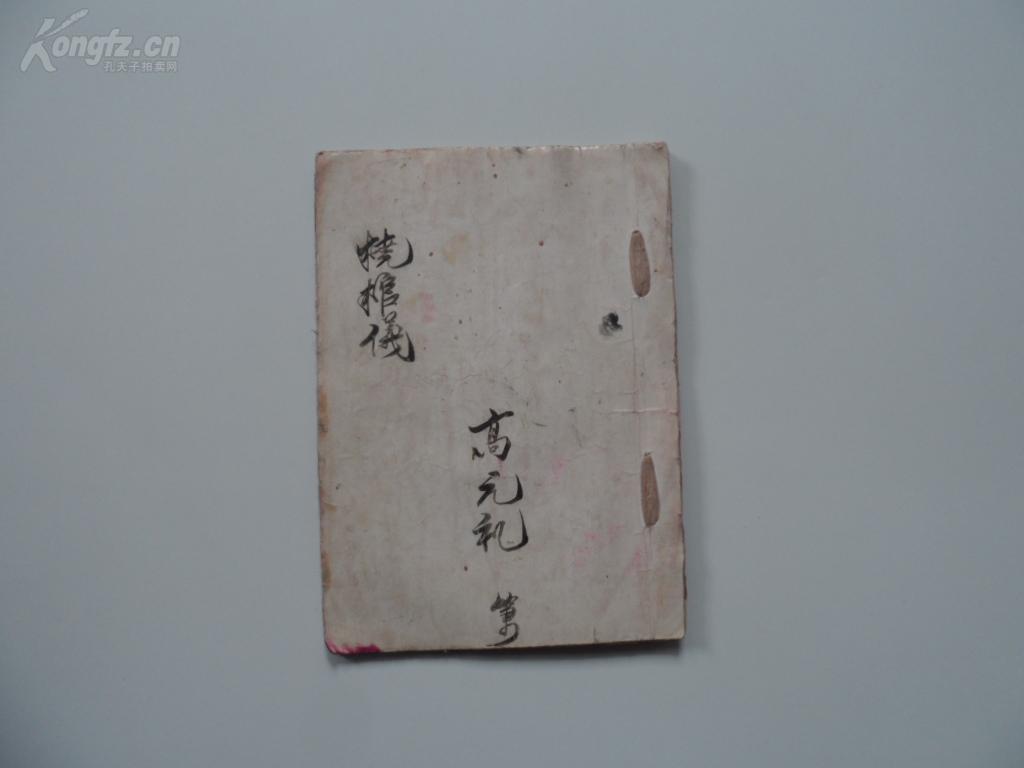 Kongfz.cn
孔夫子拍卖网
棺儀
高元礼